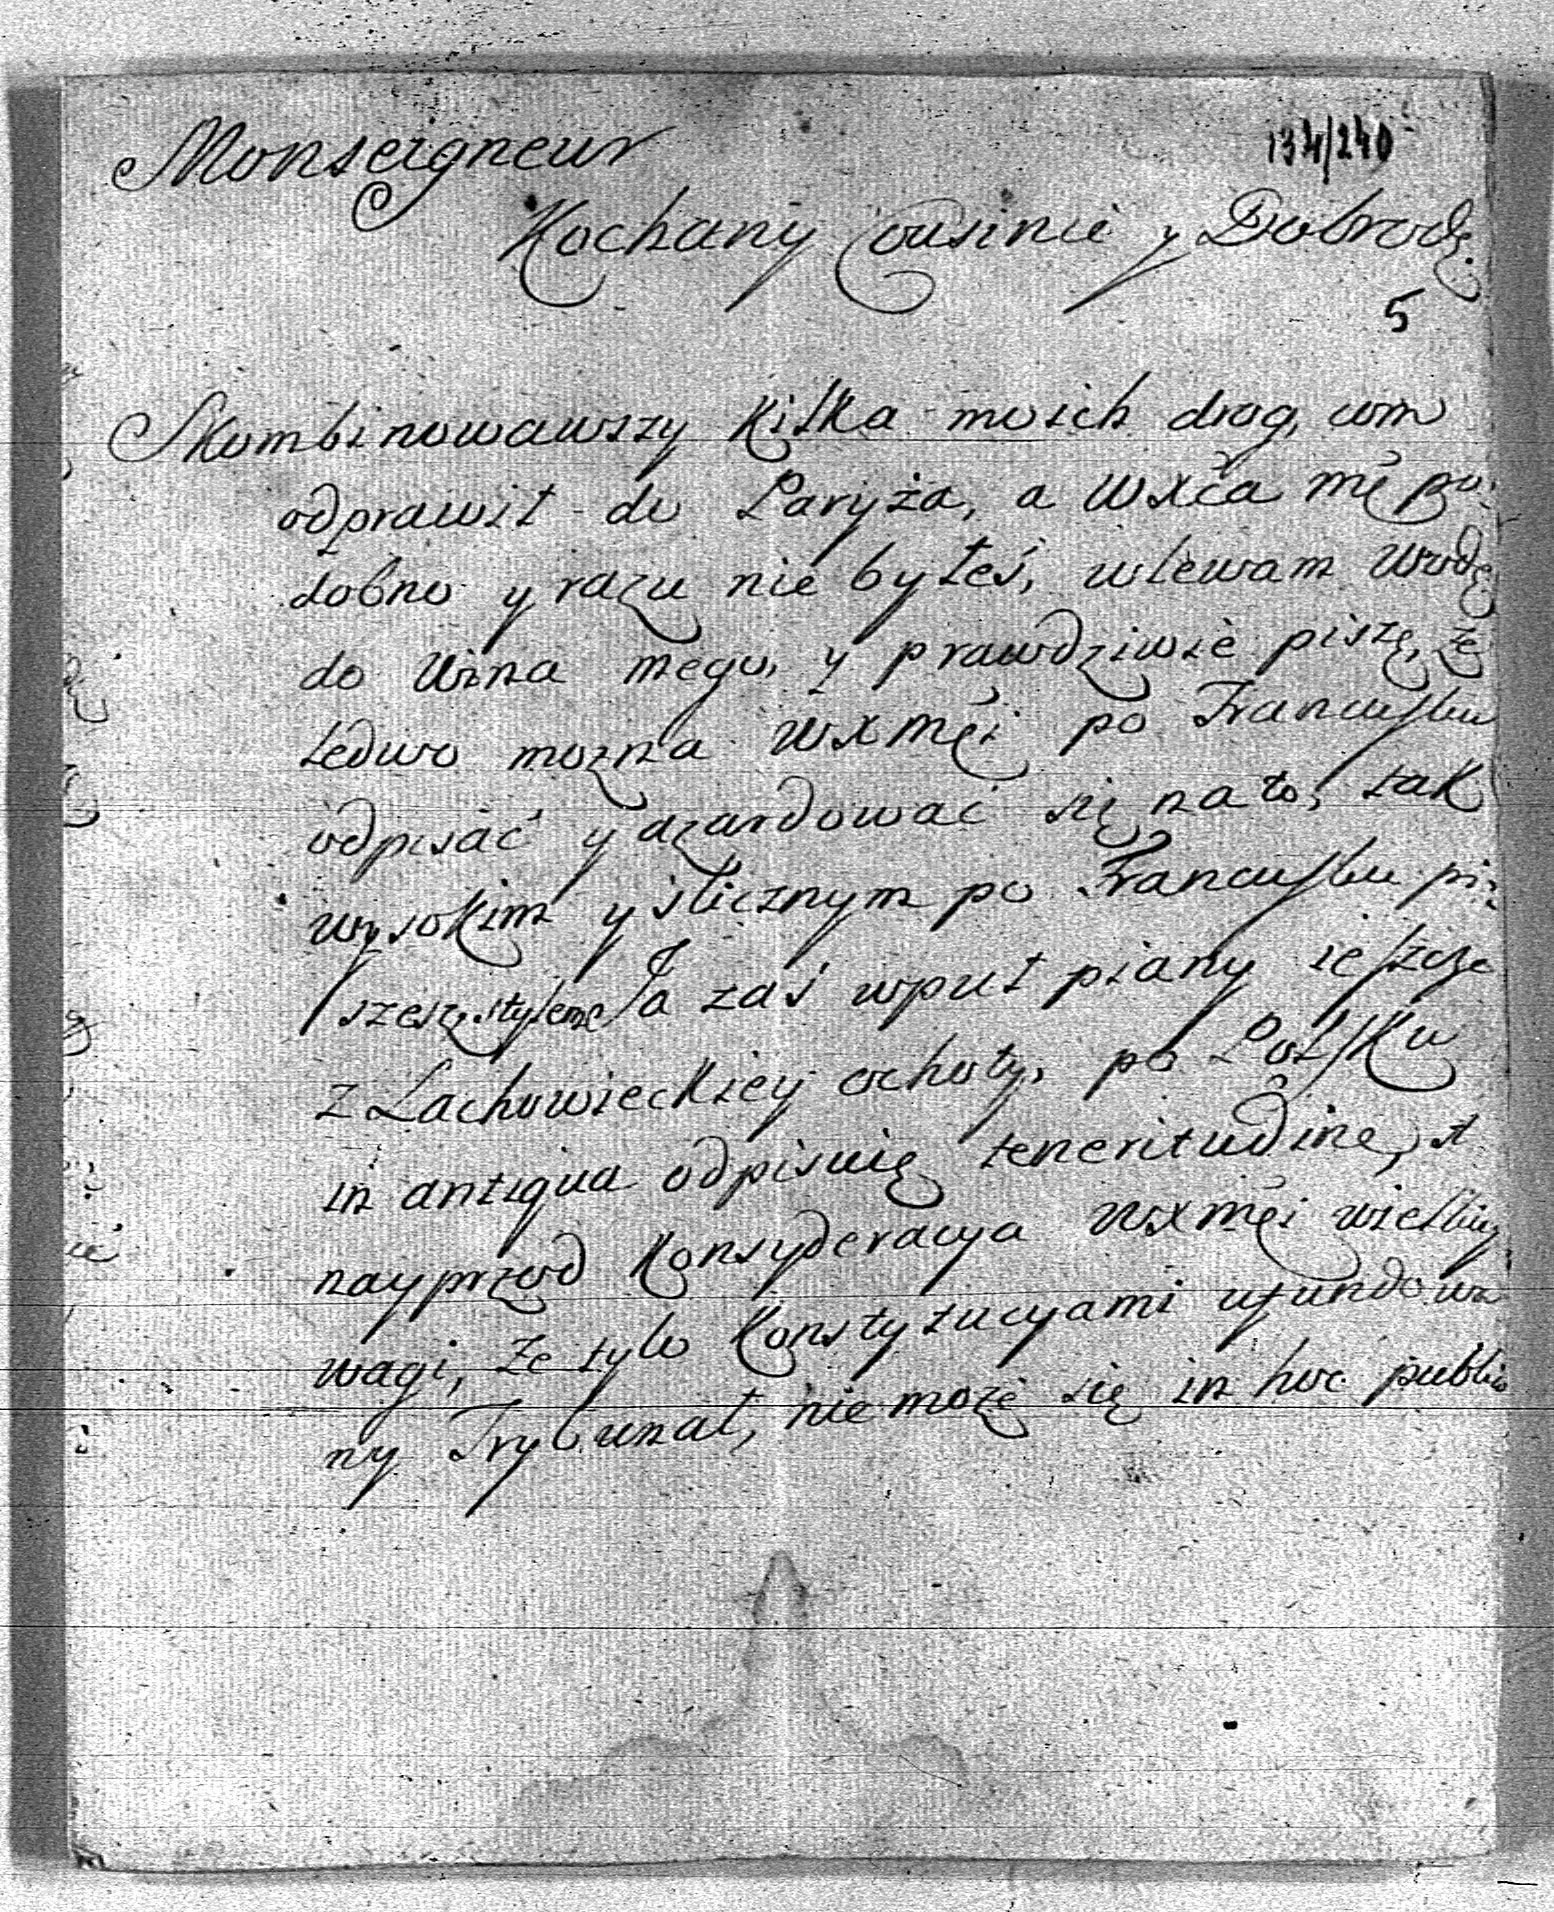 Monseigneur
134/240
Kochany Cousinie y Dobrodz.
5
Skombinowawszy kilka moich drog, com
odprawił do Paryża, a WXča mć po-
dobno y razu nie byłeś, wlewam wodę
do wina mego, y prawdziwie piszę, że
ledwo mozna WXMći po Francusku
odpisać y azardować się na to, tak
wysokim y slicznym po Francusku pi-
szesz stylem Ja zaś wpuł piany ieszcze
z Lachowieckiey ochoty, po Polsku
in antiqua odpisuię teneritudine, A
nayprzod konsyderacya WXMći wielkiey
wagi, że tylo Konstytucyami ufundowa
ny Trybunał, nie może się in hoc publico